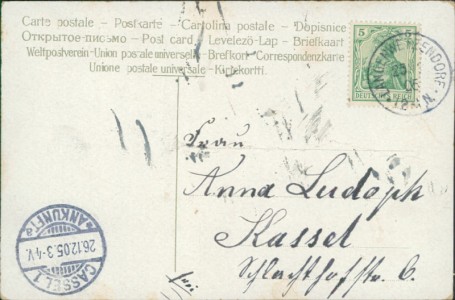 Carte postale – Postkarte – Cartolina postale – Dopisnice
Открытое письмо – Post card – Levelező-Lap – Briefkaart
Weltpostverein - Union postale universelle – Brefkort - Correspondenzkarte
Unione postale universale – Kirjekortti.
5
DEUTSCHES REICH
LANGENWETZENDORF
Frau
Anna Ludoph
Kassel
Schlachthofstr. 6.
ANKUNFT
26.12.05.3-4V.
CASSEL 1